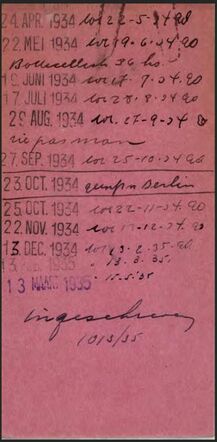 24 APR. 1934 tot 22-5-34 90
22 MEI 1934 tot 19-6-34 90
19 JUNI 1934 tot 17-7-34 90
17 JULI 1934 tot 28-8-34 90
29 AUG. 1934 tot 27-9-34
27 SEP. 1934 tot 25-10-34 90
23 OCT. 1934 Berlin
25 OCT. 1934 tot 22-11-34 90
22 NOV. 1934 tot 13-12-34 90
13 DEC. 1934 tot 13-2-35 90
13-3-35
13 MAART 1935 15-5-35
ingeschreven
10/3/35